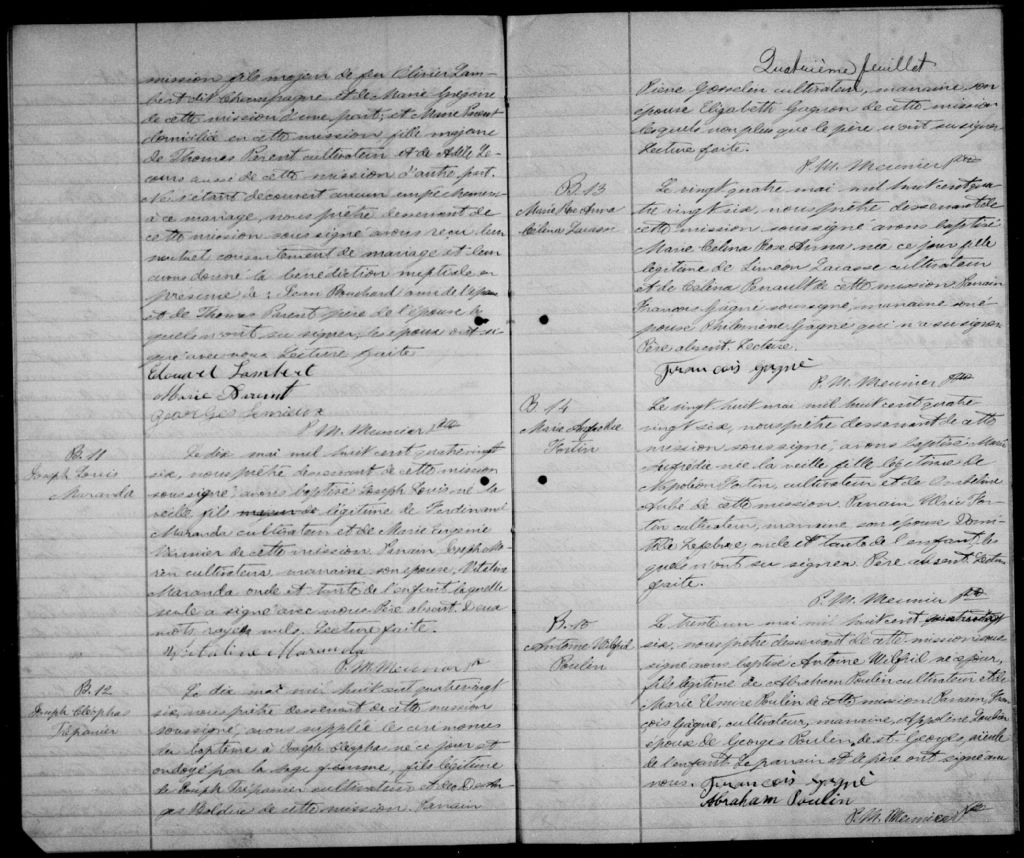 mission fils majeur de feu Olivier Lam-
bert dit Champagne et de Marie Grégoire
de cette mission d'une part, et Marie Parent
domiciliée en cette mission fille majeure
de Thomas Parent cultivateur et de Adèle Le-
cours aussi de cette mission d'autre part.
Ne s'étant découvert aucun empêchement
à ce mariage, nous prêtre desservant de
cette mission soussigné avons reçu leur
mutuel consentement de mariage et leur
avons donné la bénédiction nuptiale en
présence de: Bouchard ami de l'époux
et de Thomas Parent père de l'épouse les
quels n'ont su signer, les époux ont si-
gné avec nous Lecture faite
Edouard Lambert
Marie Parent
Georges Lemieux
P. M. Meunier Ptre
B. 11
Joseph Louis
Maranda
Le dix mai mil huit cent quatre vingt
six, nous prêtre desservant de cette mission
soussigné avons baptisé Joseph Louis né la
veille fils majeur de légitime de Ferdinand
Maranda cultivateur et de Marie Eugénie
Vermier de cette mission. Parrain, Joseph Mo-
rin cultivateur, marraine son épouse, Vitaline
Maranda oncle et tante de l'enfant laquelle
seule a signé avec nous. Père absent. Deux
mots rayés nuls. Lecture faite.
Vitaline Maranda
P. M. Meunier Ptr
B. 12
Joseph Cléophas
Trépanier
Le dix mai mil huit cent quatre vingt
six, nous prêtre desservant de cette mission
soussigné, avons supplée les cérémonies
du baptême à Joseph Cléophas né ce jour et
ondoyé par la sage femme, fils légitime
de Joseph Trépanier cultivateur et de Des An-
ges Bolduc de cette mission. Parrain
Quatrième feuillet
Pierre Gosselin cultivateur, marraine son
épouse Elizabeth Gagnon de cette mission
lesquels non plus que le père n'ont su signer
Lecture faite.
P. M. Meunier Ptre
B. 13
Marie Rose Anna
Celina Lacasse
Le vingt quatre mai mil huit cent qua-
tre vingt six, nous prêtre desservant de
cette mission soussigné avons baptisé
Marie Celina Rose Anna née ce jour fille
légitime de Siméon Lacasse cultivateur
et de Celina Renault de cette mission Parrain
François Gagné soussigné, marraine son é-
pouse Philomène Gagné qui n'a su signer
Père absent. Lecture.
François gagné
P. M. Meunier Ptre
B. 14
Marie
Fortin
Le vingt huit mai mil huit cent quatre
vingt six, nous prêtre desservant de cette
mission soussigné, avons baptisé Marie
née la veille fille légitime de
Napoléon Fortin, cultivateur et de
Aubé de cette mission. Parrain Ulric For-
tin cultivateur, marraine son épouse Domi-
tilde Lefebvre, oncle et tante de l'enfant, les
quels n'ont su signer. Père absent. Lecture
faite.
P. M. Meunier Ptre
B. 15
Antoine Wilfrid
Poulin
Le trente un mai mil huit cent quatre vingt
six, nous prêtre desservant de cette mission sous-
signé avons baptisé Antoine Wilfrid né ce jour,
fils légitime de Abraham Poulin cultivateur et de
Marie Elmire Poulin de cette mission Parrain, Fran-
çois Gagné, cultivateur, marraine, Appolène
épouse de Georges Poulin de St Georges, aïeule
de l'enfant. Le parrain et le père ont signé avec
nous.
François gagné
Abraham Poulin
P. M. Meunier Ptre